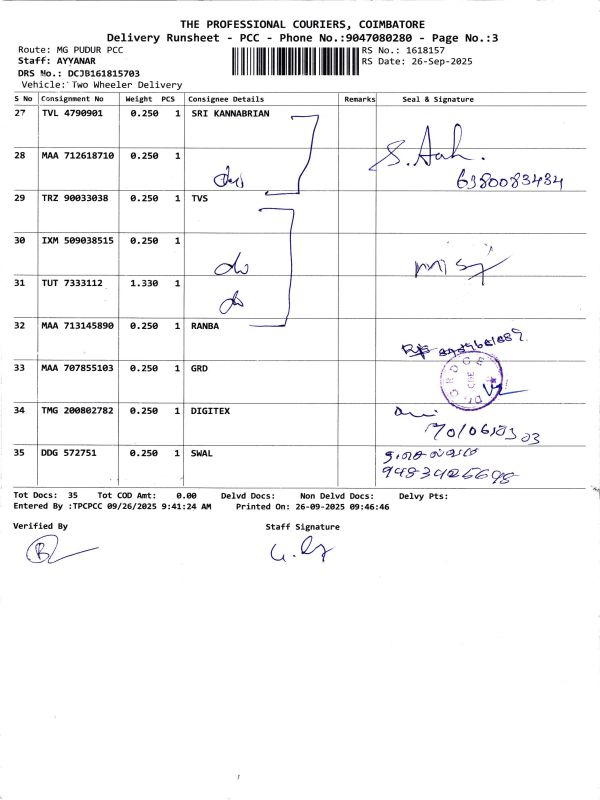 THE PROFESSIONAL COURIERS, COIMBATORE
Delivery Runsheet - PCC - Phone No.:9047080280 - Page No.:3
Route: MG PUDUR PCC RS No.: 1618157
Staff: AYYANAR RS Date: 26-Sep-2025
DRS No.: DCJB161815703
Vehicle: Two Wheeler Delivery
S No Consignment No Weight PCS Consignee Details Remarks Seal & Signature
27 TVL 4790901 0.250 1 SRI KANNABRIAN
28 MAA 712618710 0.250 1
6380083484
29 TRZ 90033038 0.250 1 TVS
30 IXM 509038515 0.250 1
31 TUT 7333112 1.330 1
32 MAA 713145890 0.250 1 RANBA
33 MAA 707855103 0.250 1 GRD
34 TMG 200802782 0.250 1 DIGITEX
35 DDG 572751 0.250 1 SWAL
Tot Docs: 35 Tot COD Amt: 0.00 Delvd Docs: Non Delvd Docs: Delvy Pts:
Entered By :TPCPCC 09/26/2025 9:41:24 AM Printed On: 26-09-2025 09:46:46
Verified By Staff Signature